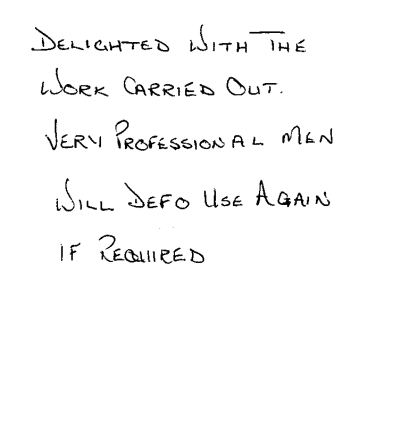 DELIGHTED WITH THE
WORK CARRIED OUT.
VERY PROFESSIONAL MEN
WILL DEFO USE AGAIN
IF REQUIRED